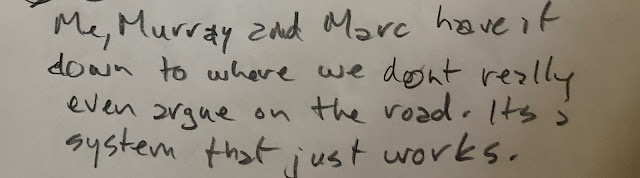 Me, Murray and Marc have it
down to where we dont really
even argue on the road. Its a
system that just works.